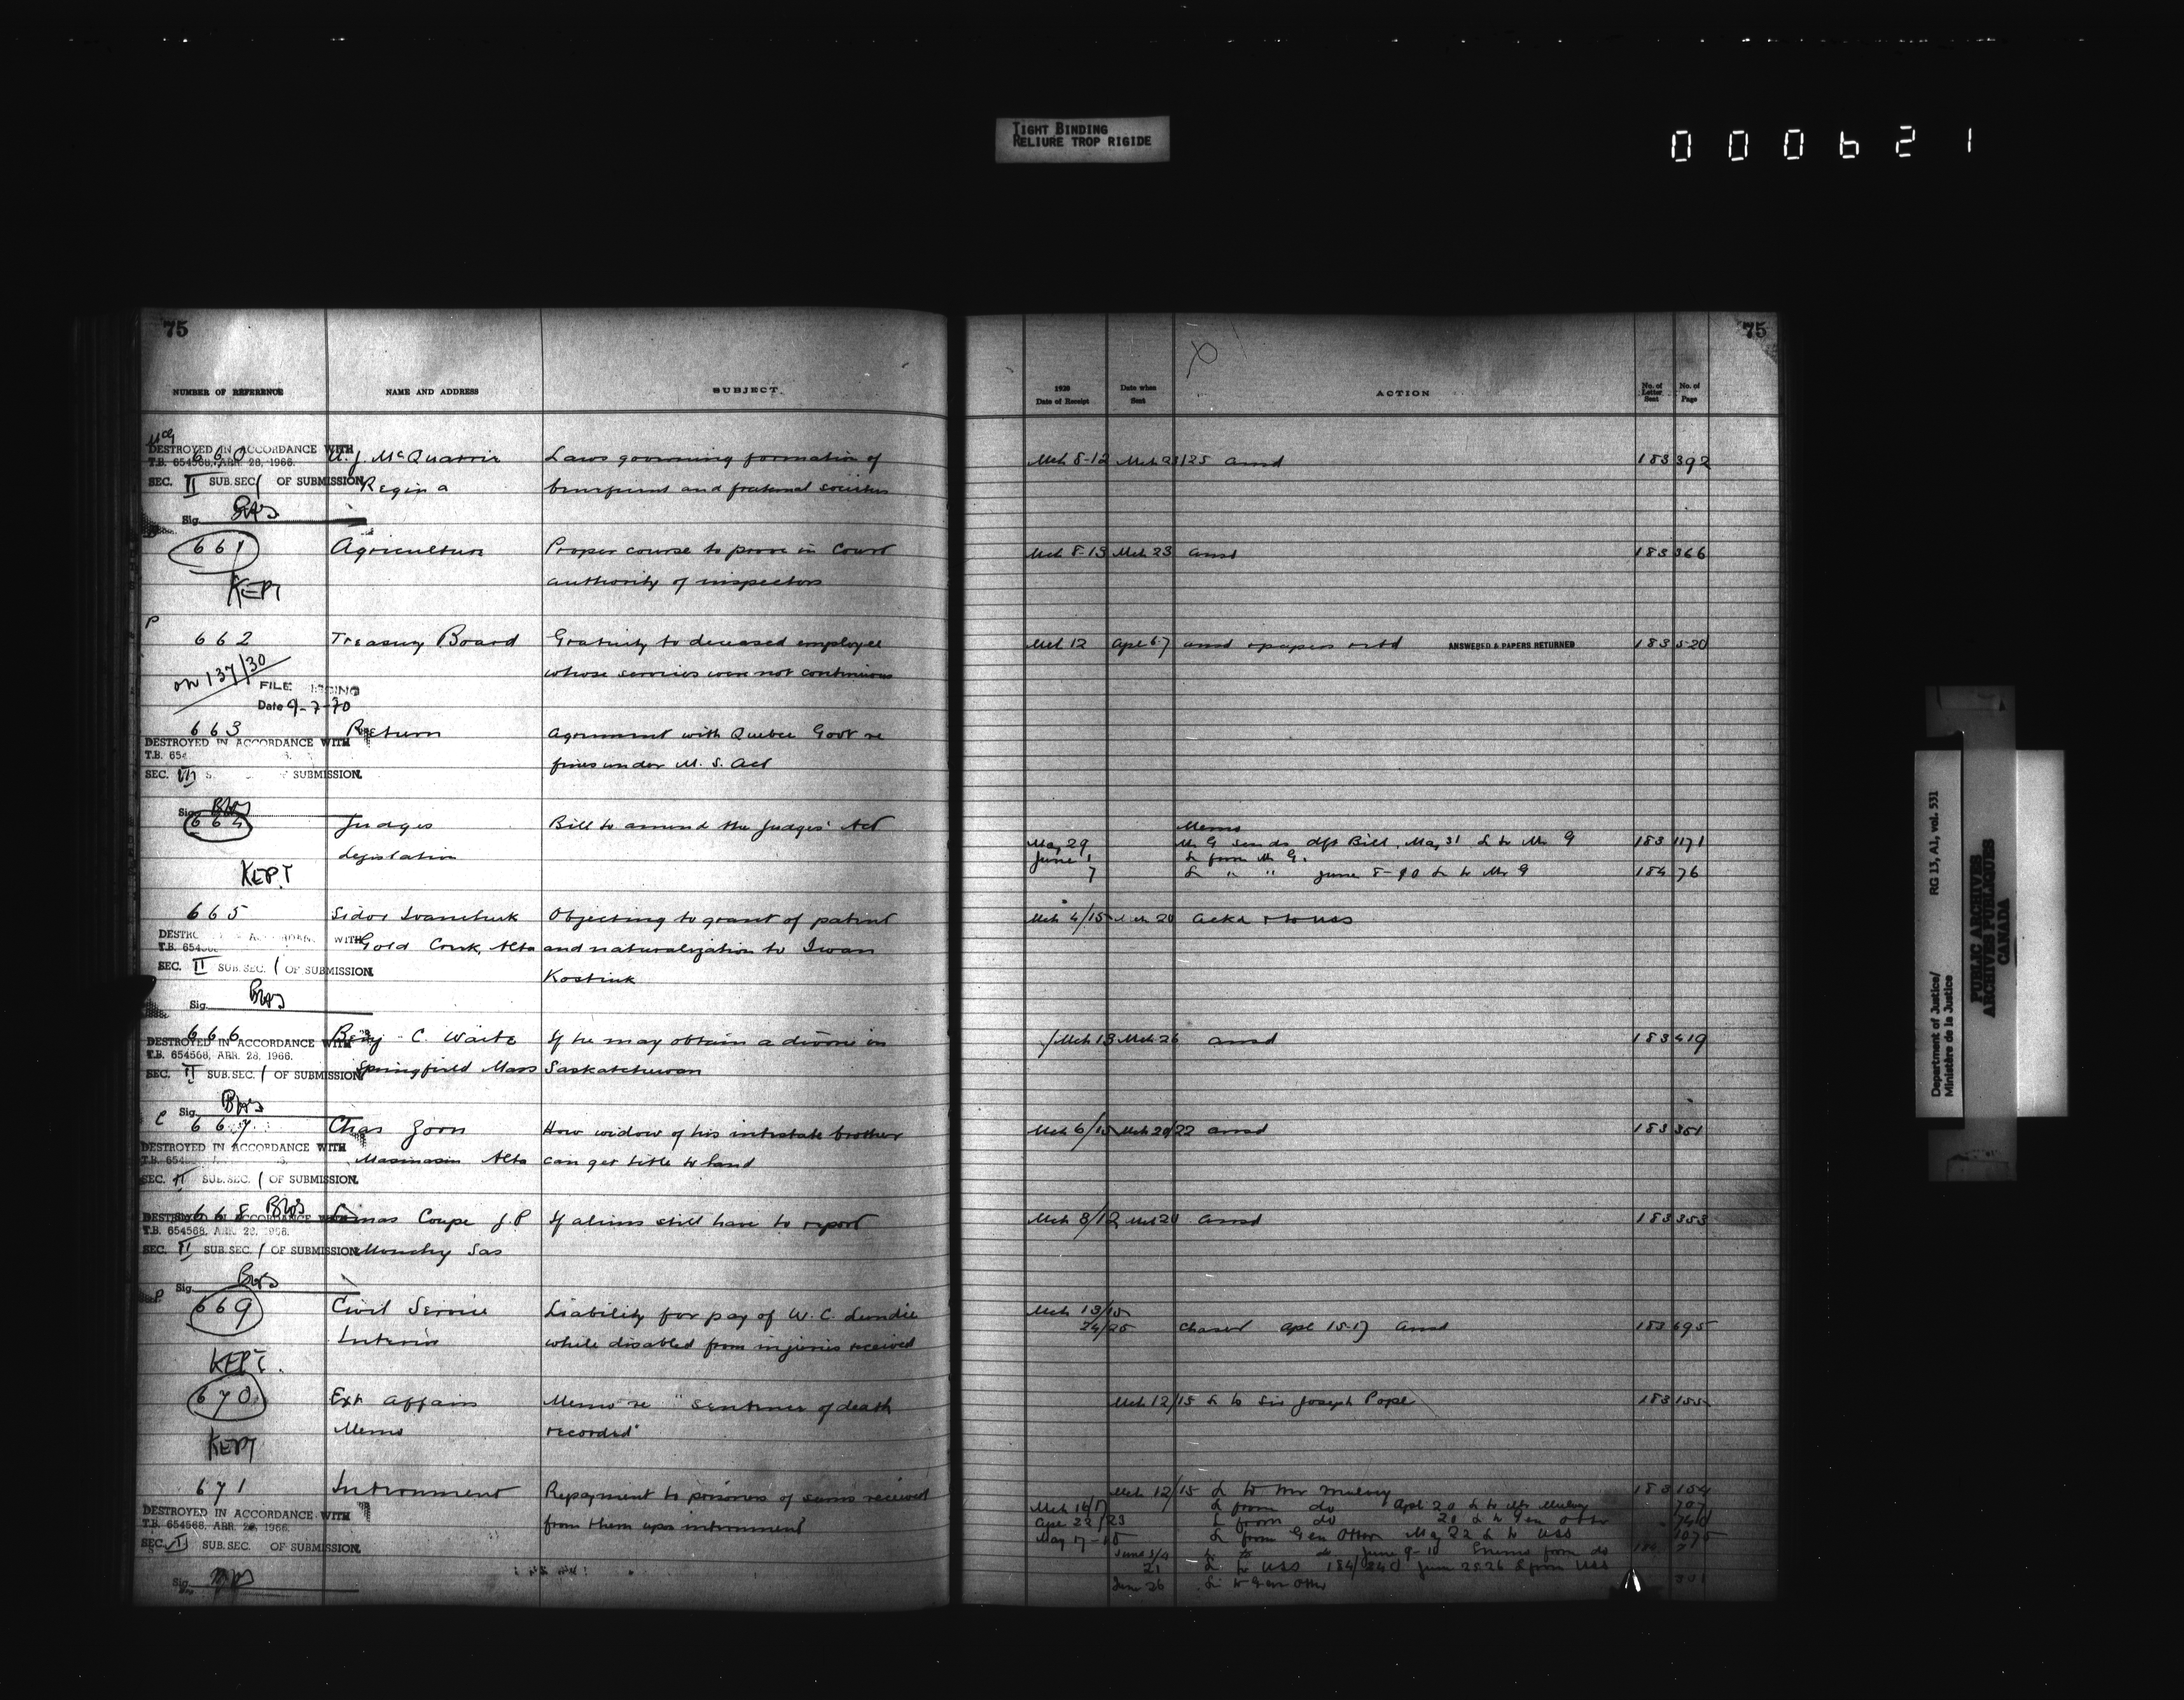 TIGHT BINDING
RELIURE TROP RIGIDE
000621
75
NUMBER OF REFERENCE NAME AND ADDRESS SUBJECT
DESTROYED IN ACCORDANCE WITH
T.B. 654568, APR. 28, 1966.
660 J. McQuarrie Laws governing formation of
SEC. II SUB.SEC / OF SUBMISSION Regina benevolent and fraternal societies
Sig.
661 Agriculture Proper course to prove in Court
authority of inspectors
KEPT
P
662 Treasury Board Gratuity to deceased employee
on 137/30 whose services were not continuous
FILE
Date 9-7-70
663 Return Agreement with Quebec Govt re
DESTROYED IN ACCORDANCE WITH
T.B. 654
fines under M. S. Act
SEC. SUBMISSION
Sig.
664 Judges Bill to amend the Judges' Act
Legislation
KEPT
665 Sidor Ivanchuk Objecting to grant of patent
WITH Gold Creek, Alta and naturalization to Iwan
T.B.
SEC. II SUB.SEC. / OF SUBMISSION Kostiuk
Sig.
666 Benj. C. Waite If he may obtain a divorce in
DESTROYED IN ACCORDANCE WITH
T.B. 654568, APR. 28, 1966.
SEC. II SUB.SEC. / OF SUBMISSION Springfield Mass Saskatchewan
Sig.
C
667 Chas Zorn How widow of his intestate brother
DESTROYED IN ACCORDANCE WITH
Alta can get title to land
SEC. II SUB.SEC. / OF SUBMISSION
668 Coupe J.P. If aliens still have to report
DESTROYED IN ACCORDANCE
T.B. 654568, APR. 28, 1966.
SEC. II SUB.SEC. / OF SUBMISSION Monchy Sas
Sig.
P
669 Civil Service Liability for pay of W. C. Lundie
Interior while disabled from injuries received
KEPT
670 Ext Affairs Memo re "Sentence of death
Memo recorded"
KEPT
671 Internment Repayment to prisoners of sums received
DESTROYED IN ACCORDANCE WITH
T.B. 654568, APR. 28, 1966.
from them upon internment
SEC. II SUB.SEC. OF SUBMISSION
Sig.
75
1920
Date of Receipt Date when Sent ACTION No. of Letter Sent No. of Page
Mch 8-12 Mch 23/25 ansd 183 392
Mch 8-13 Mch 23 ansd 183 366
Mch 12 Apl 6-7 ansd & papers retd ANSWERED & PAPERS RETURNED 183 520
Memo
May 29 Mr G sends dft Bill, May 31 L to Mr G 183 1171
June 1 L from Mr G.
7 L " " June 8-10 L to Mr G 184 76
Mch 4/15 Mch 20 Ackd & to USS
Mch 13 Mch 26 ansd 183 419
Mch 6/15 Mch 20/22 ansd 183 351
Mch 8/12 Mch 20 ansd 183 353
Mch 13/15
24/25 Chaser Apl 15-17 Ansd 183 695
Mch 12/15 L to Sir Joseph Pope 183 155
Mch 12/15 L to Mr Mulvey 183 154
Mch 16/17 L from do Apl 20 L to Mr Mulvey 707
Apl 22/23 L from do 20 L to Gen Otter 740
May 17-18 L from Gen Otter May 22 L to USS 1075
June 3/4 L to do June 9-10 from do
21 L to USS 184/240 June 25 26 L from USS
June 26 L to Gen Otter 301
Department of Justice/
Ministère de la Justice
RG 13, A1, vol. 531
PUBLIC ARCHIVES
ARCHIVES PUBLIQUES
CANADA